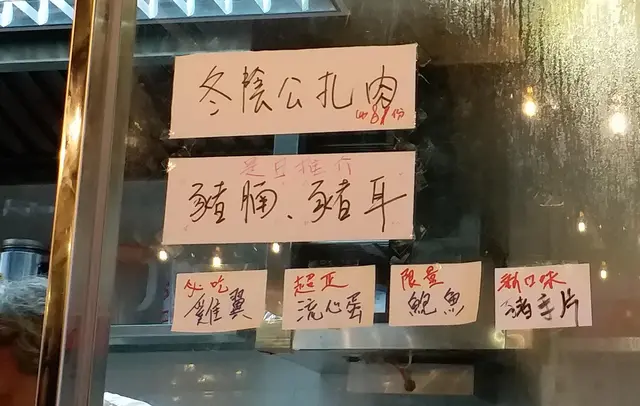 冬陰公扎肉
89份
是日推介
豬腩、豬耳
必吃
雞翼
超正
流心蛋
限量
鮑魚
新口味
豬手片